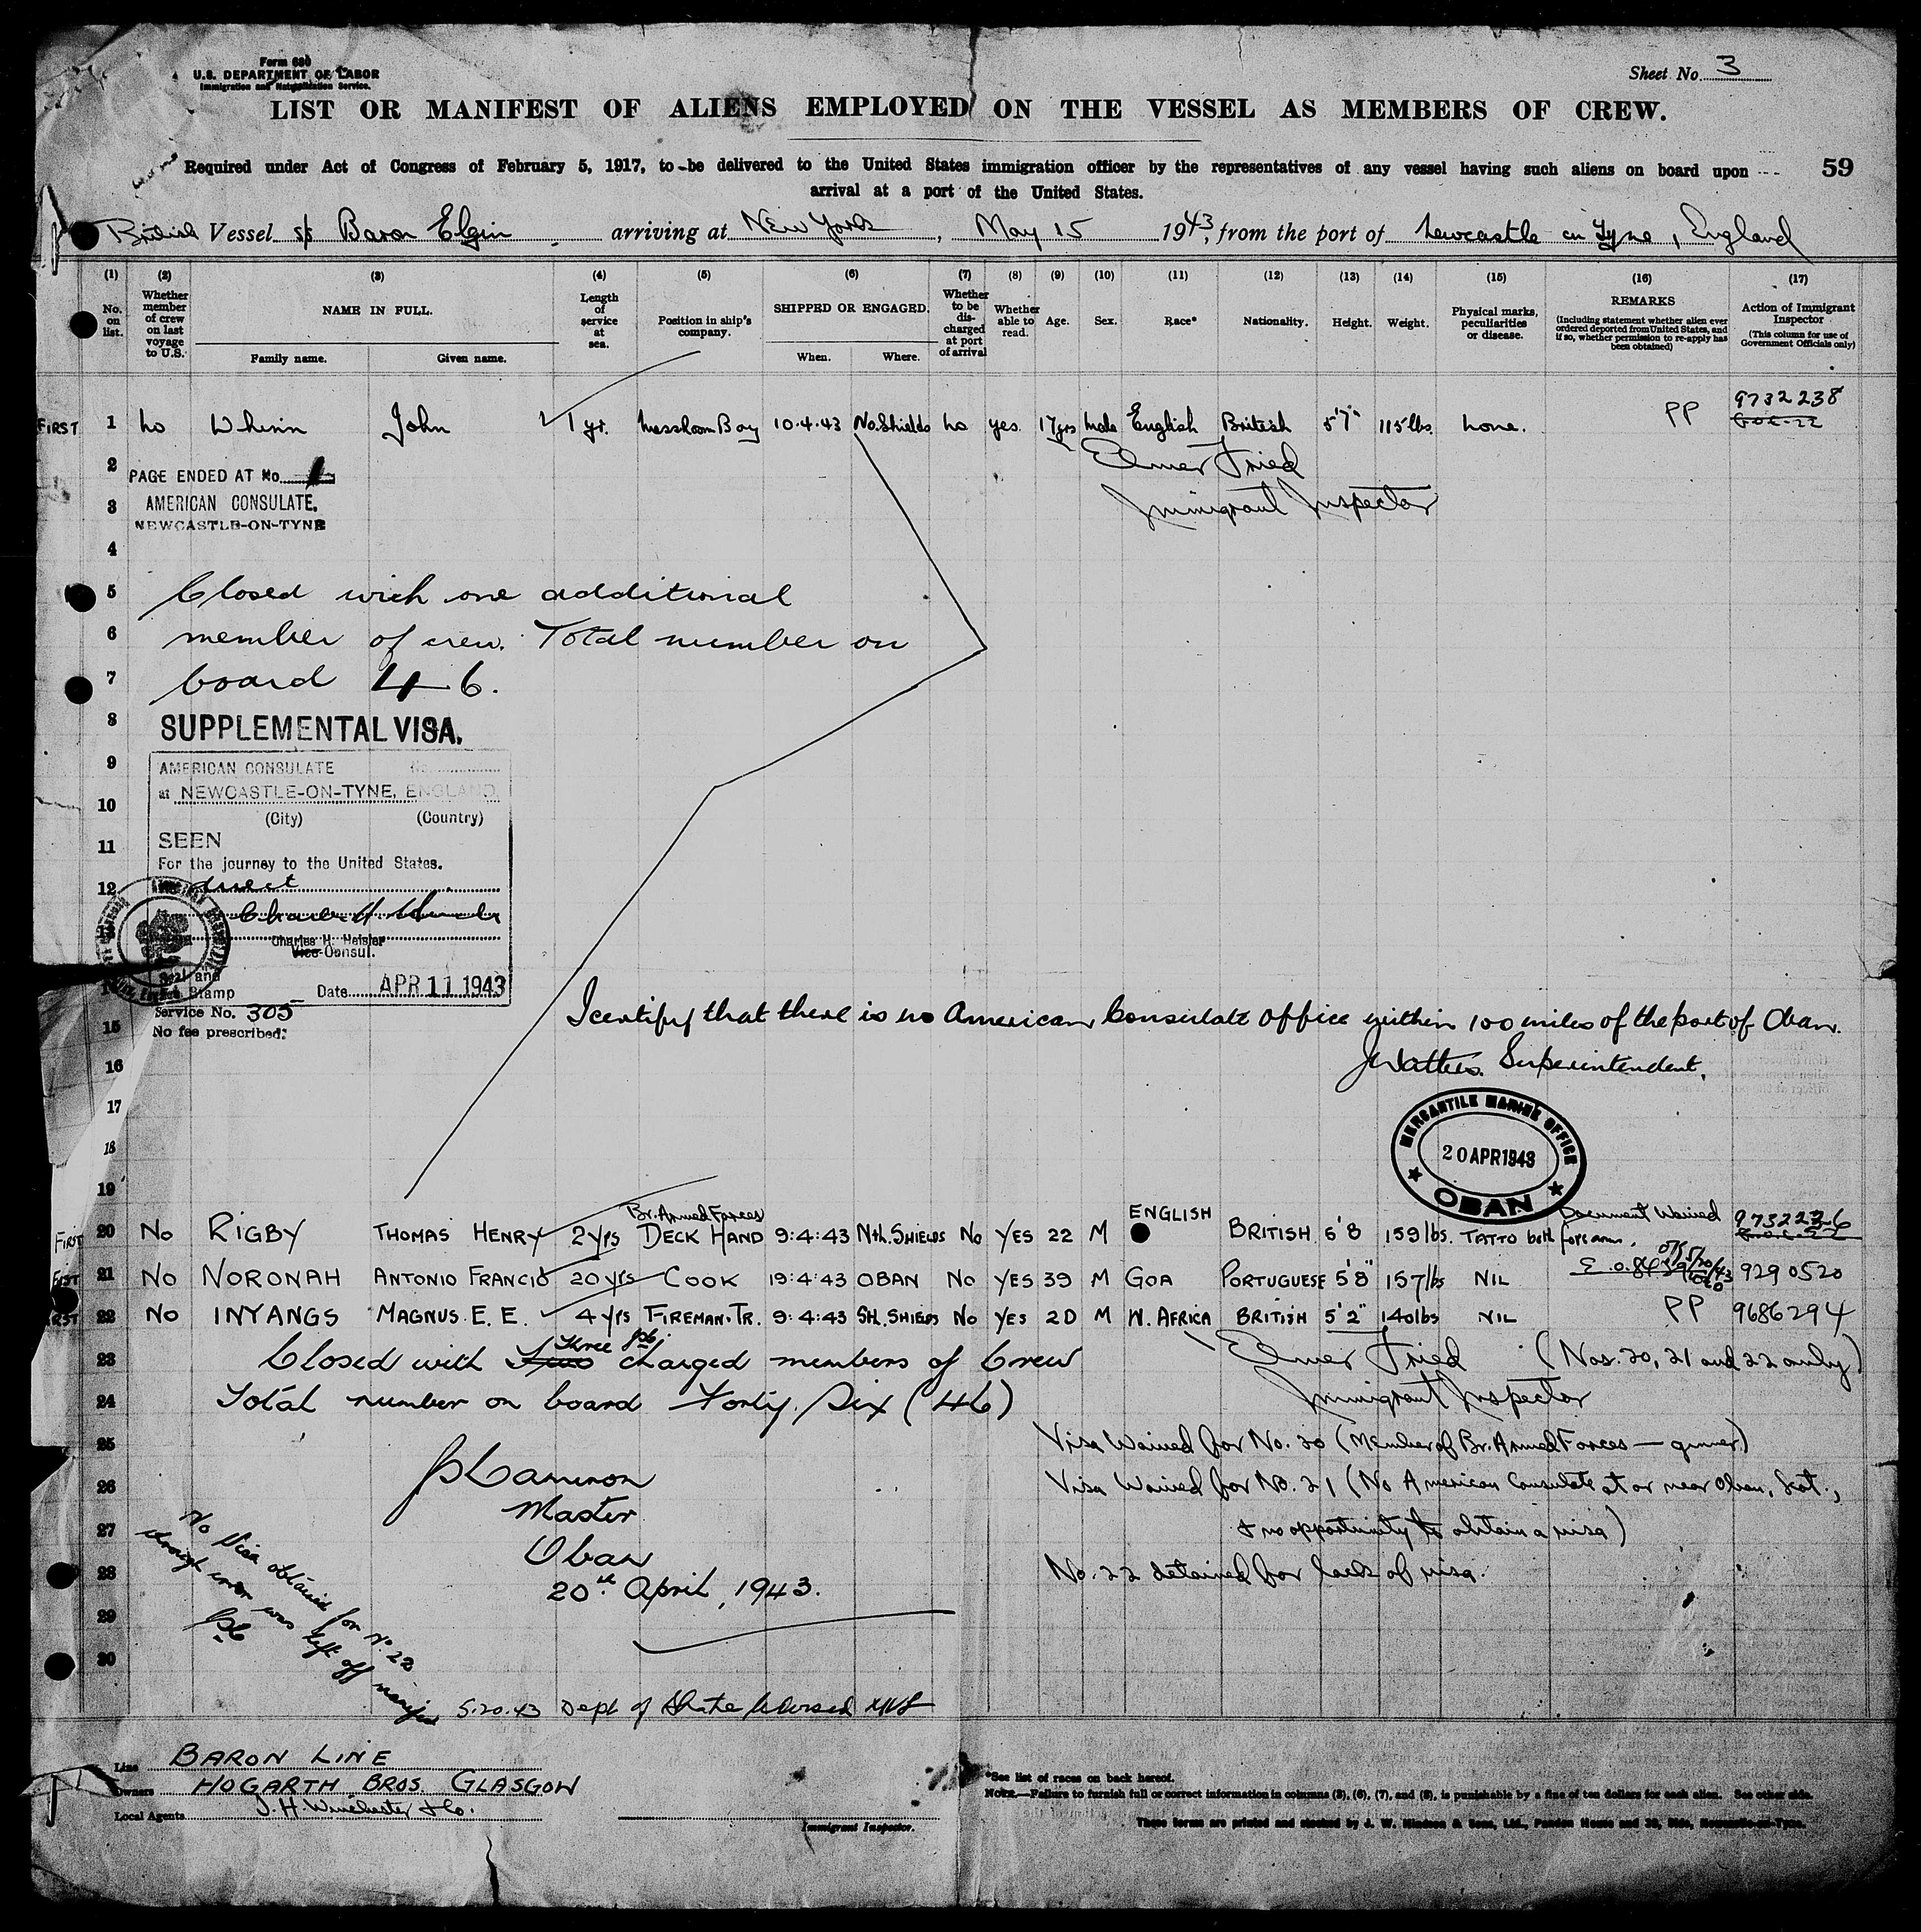 Form 680
U.S. DEPARTMENT OF LABOR
Immigration and Naturalization Service.
Sheet No. 3
LIST OR MANIFEST OF ALIENS EMPLOYED ON THE VESSEL AS MEMBERS OF CREW.
Required under Act of Congress of February 5, 1917, to be delivered to the United States immigration officer by the representatives of any vessel having such aliens on board upon
arrival at a port of the United States.
59
British Vessel s/s Baron Elgin arriving at New York, May 15 1943, from the port of Newcastle on Tyne, England
(1) (2) (3) (4) (5) (6) (7) (8) (9) (10) (11) (12) (13) (14) (15) (16) (17)
No. on list.
Whether member of crew on last voyage to U.S.
NAME IN FULL.
Family name. Given name.
Length of service at sea.
Position in ship's company.
SHIPPED OR ENGAGED.
When. Where.
Whether to be discharged at port of arrival
Whether able to read.
Age.
Sex.
Race*
Nationality.
Height.
Weight.
Physical marks, peculiarities or disease.
REMARKS
(Including statement whether alien ever ordered deported from United States, and if so, whether permission to re-apply has been obtained)
Action of Immigrant Inspector
(This column for use of Government Officials only)
9732238
FIRST 1 No Whinn John 1 yr. Messroom Boy 10.4.43 No. Shields No yes. 17yrs Male English British 5'7" 115 lbs. None. PP
2 Elmer Fried
PAGE ENDED AT No. 1
AMERICAN CONSULATE,
3 Immigrant Inspector
NEWCASTLE-ON-TYNE
4
5 Closed with one additional
6 member of crew. Total number on
7 board 46.
8 SUPPLEMENTAL VISA.
9 AMERICAN CONSULATE
at NEWCASTLE-ON-TYNE, ENGLAND.
10 (City) (Country)
11 SEEN
For the journey to the United States.
12 direct
Charles H. Heisler
Vice-Consul.
Seal and
Stamp Date APR 11 1943
Service No. 305
15 No fee prescribed.
I certify that there is no American Consulate office within 100 miles of the port of Oban.
16 J Watters. Superintendent.
17
18
MERCANTILE MARINE OFFICE
20 APR 1943
OBAN
19
Br. Armed Forces ENGLISH Document Waived 9732226
FIRST 20 No RIGBY THOMAS HENRY 2 yrs DECK HAND 9:4:43 Nth. SHIELDS No YES 22 M BRITISH 5'8 159 lbs. TATTO both forearms.
FIRST 21 No NORONAH ANTONIO FRANCIO 20 yrs COOK 19:4:43 OBAN No YES 39 M GOA PORTUGUESE 5'8" 157 lbs NIL 9290520
FIRST 22 No INYANGS MAGNUS. E. E. 4 yrs FIREMAN. TR. 9:4:43 Sth. SHIELDS No YES 20 M W. AFRICA BRITISH 5'2" 140 lbs NIL PP 9686294
23 Closed with Three charged members of Crew
Elmer Fried (Nos. 20, 21 and 22 only)
24 Total number on board Forty Six (46)
Immigrant Inspector
25 Visa Waived for No. 20 (Member of Br. Armed Forces — gunner)
26 JS Cameron
Visa Waived for No. 21 (No American Consulate at or near Oban, Scot.,
Master
27 & no opportunity to obtain a visa)
Oban
28 No. 22 detained for lack of visa.
20th April, 1943.
29
30
No Visa obtained for No. 22
through error was left off manifest
5.20.43 Dept of State
Line BARON LINE
Owners HOGARTH BROS. GLASGOW
Local Agents J. H. Winchester & Co.
Immigrant Inspector.
*See list of races on back hereof.
NOTE.—Failure to furnish full or correct information in columns (3), (6), (7), and (8), is punishable by a fine of ten dollars for each alien. See other side.
These forms are printed and stocked by J. W. Hindson & Sons, Ltd., Pandon House and 30, Side, Newcastle-on-Tyne.